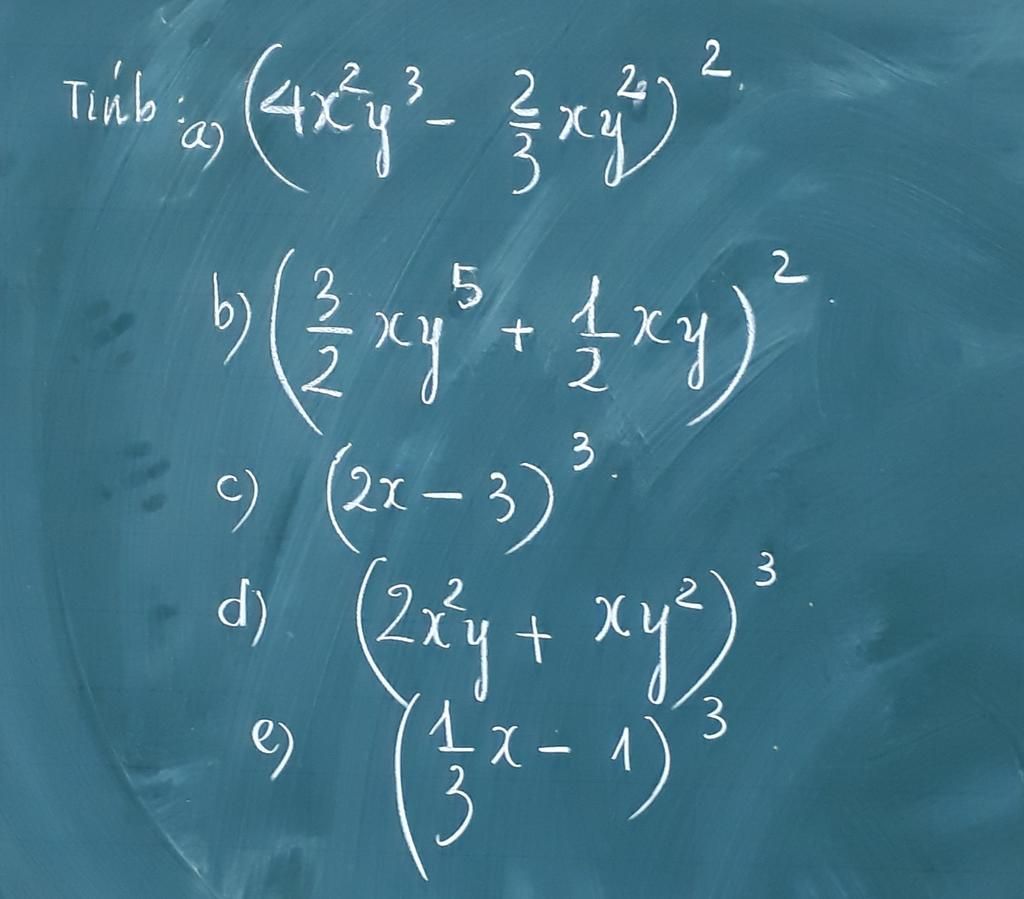 Tính : a) (4x²y³ - 2/3 xy²)².
b) (3/2 xy⁵ + 1/2 xy)².
c) (2x - 3)³.
d) (2x²y + xy²)³.
e) (1/3 x - 1)³.